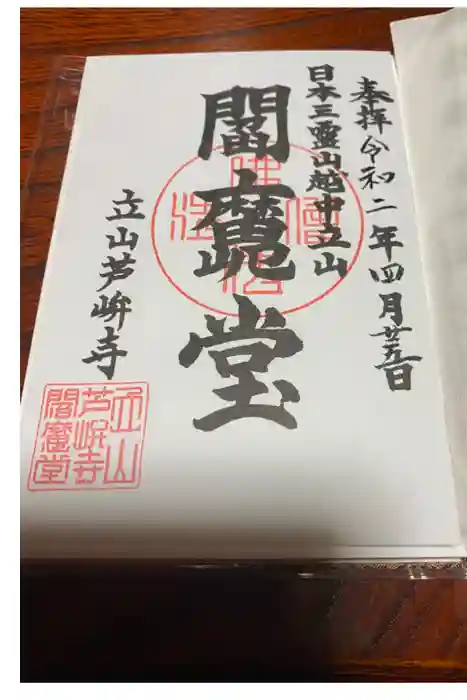 奉拝令和二年四月廿五日
日本三靈山越中立山
閻魔堂
立山芦峅寺
立山
芦峅寺
閻魔堂